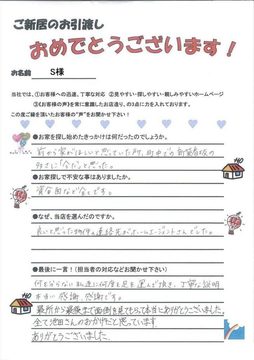 ご新居のお引渡し
おめでとうございます！
お名前 S様
当社では、①お客様への迅速、丁寧な対応 ②見やすい・探しやすい・親しみやすいホームページ
③《お客様の声》を常に意識したお店造り、の3点に力を入れております。
この度ご縁を頂いたお客様の“声”をお聞かせ下さい！
●お家を探し始めたきっかけは何だったのでしょうか。
前から家がほしいと思っていた所、町中でも新築
●お家探しで不安な事はありましたか。
資金面など全てです。
●なぜ、当店を選んだのですか。
良いと思った物件の連絡先がホームエージェントさんでした。
●最後に一言！（担当者の対応などお聞かせ下さい）
何も分からない私達に何度も足を運んで頂き、丁寧な説明
本当に感謝、感謝です。
最初から最後まで面倒を見てもらって本当にありがとうございました。
全て池田さんのおかげだと思っています
ありがとうございました。